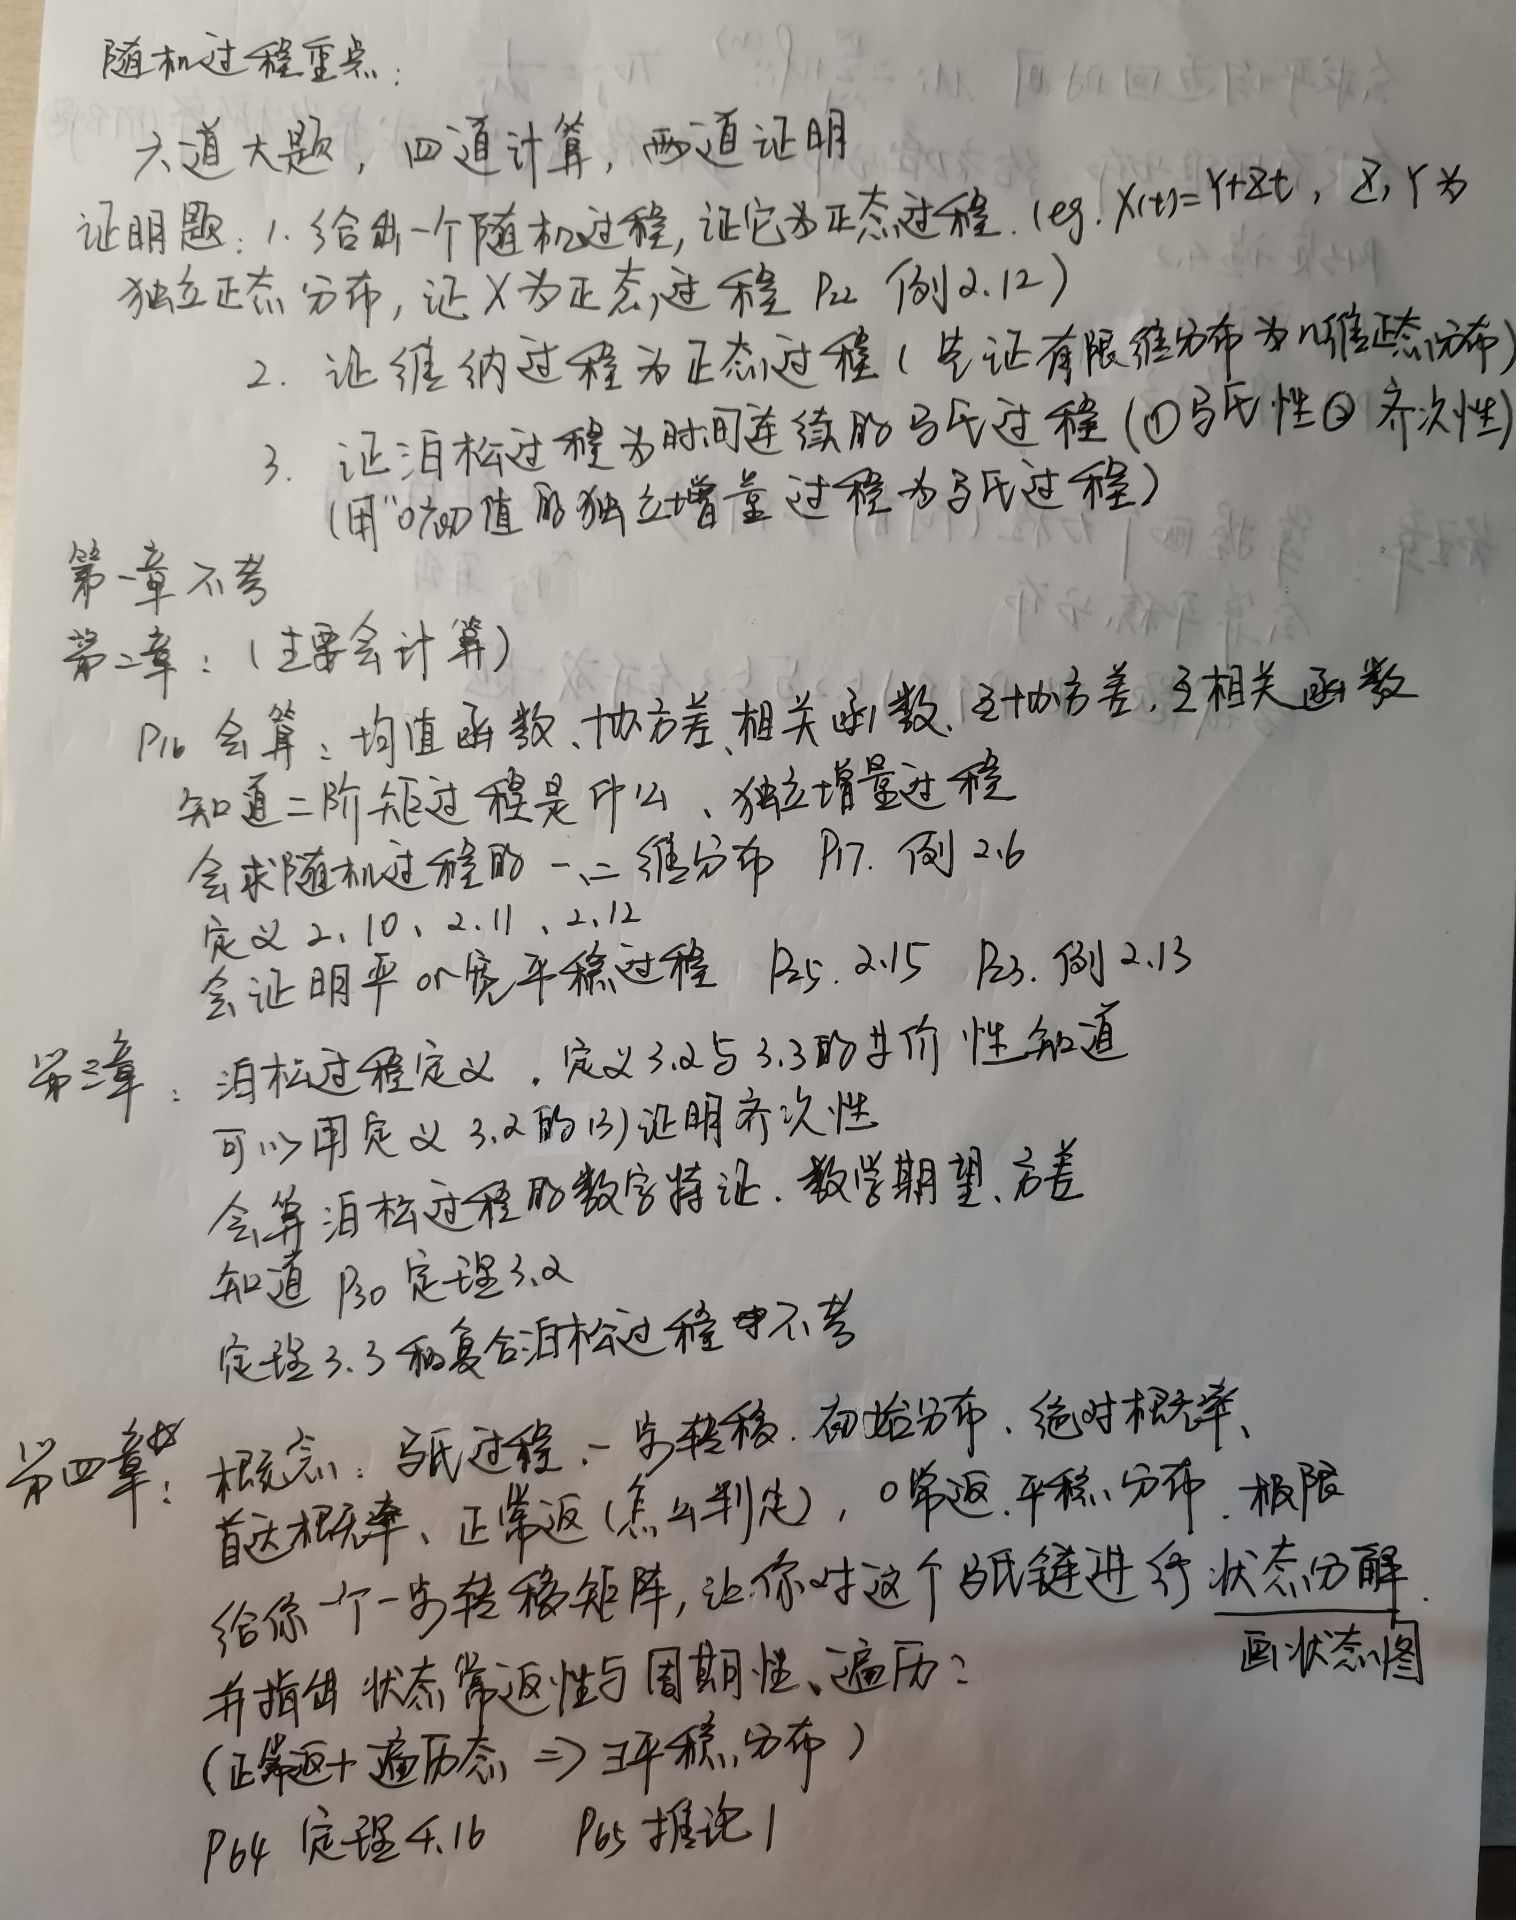 随机过程重点：
六道大题，四道计算，两道证明
证明题：1. 给出一个随机过程，证它为正态过程.（eg. X(t)=Y+Zt，Z，Y为
独立正态分布，证X为正态过程 P22 例2.12）
2. 证维纳过程为正态过程（先证有限维分布为n维正态分布）
3. 证泊松过程为时间连续的马氏过程（①马氏性②齐次性）
（用"0初值的独立增量过程为马氏过程）
第一章不考
第二章：（主要会计算）
P16 会算：均值函数、协方差、相关函数、互协方差，互相关函数
知道二阶矩过程是什么、独立增量过程
会求随机过程的一、二维分布 P17. 例2.6
定义2.10、2.11、2.12
会证明平or宽平稳过程 P25. 2.15 P23. 例2.13
第三章：泊松过程定义，定义3.2与3.3的等价性知道
可以用定义3.2的(3)证明齐次性
会算泊松过程的数字特征．数学期望、方差
知道P30定理3.2
定理3.3和复合泊松过程不考
第四章☆：概念：马氏过程、一步转移．初始分布、绝对概率、
首达概率、正常返（怎么判定），0常返．平稳分布．极限
给你一个一步转移矩阵，让你对这个马氏链进行状态分解.
画状态图
并指出状态常返性与周期性、遍历？
（正常返+遍历态 => ∃平稳分布）
P64 定理4.16 P65 推论1